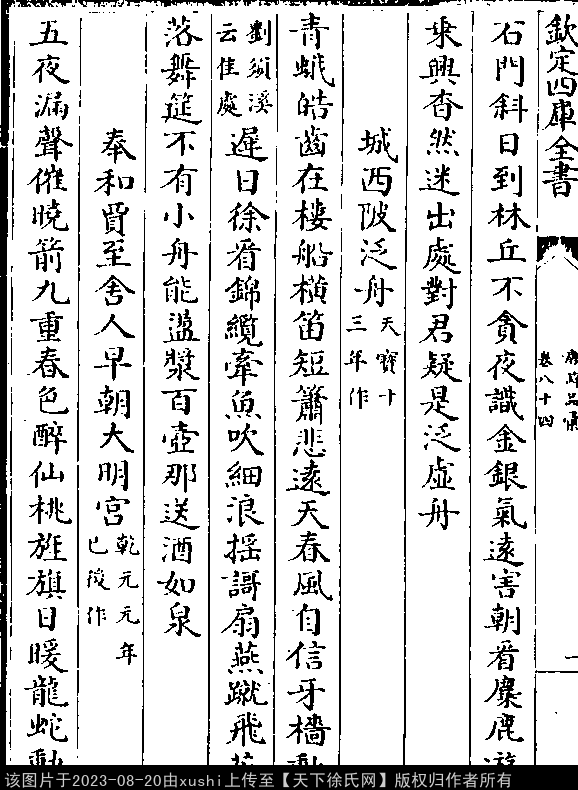 欽定四庫全書
卷八十四
石門斜日到林丘不貪夜識金銀氣遠害朝看麋鹿遊
乗興杳然迷出處對君疑是泛虛舟
城西陂泛舟天寶十三年作
青蛾皓齒在樓船橫笛短簫悲遠天春風自信牙檣動
劉湏溪云佳處遲日徐看錦纜牽魚吹細浪揺謌扇燕蹴飛花
落舞筵不有小舟能盪漿百壺那送酒如泉
奉和賈至舍人早朝大明宮乾元元年已後作
五夜漏聲催曉箭九重春色醉仙桃旌旗日暖龍蛇動
该图片于2023-08-20由xushi上传至【天下徐氏网】版权归作者所有